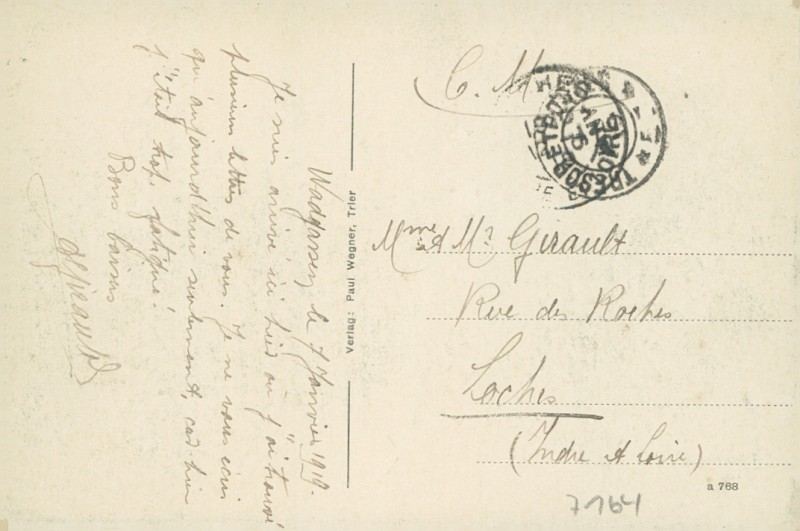 Wadgassen, le 7 Janvier 1919.
Je suis arrivé ici hier où j'ai trouvé
plusieurs lettres de vous. Je ne vous écris
qu'aujourd'hui seulement, car hier
j'étais trop fatigué.
Bons baisers
AGirault
Verlag: Paul Wegner, Trier
C. M
TRESOR ET POSTES
Mme et Mr Girault
Rue des Roches
Loches
(Indre et Loire)
a 768
7164